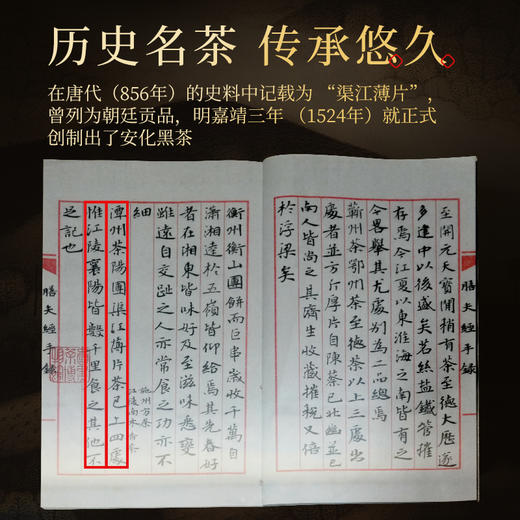 历史名茶 传承悠久
在唐代（856年）的史料中记载为 “渠江薄片”，
曾列为朝廷贡品，明嘉靖三年 （1524年）就正式
创制出了安化黑茶
膳夫經手錄
至開元天寶間稍有茶至德大歷遂
多建中以後盛矣若絲鹽鐵管摧
存焉今江夏以東淮海之南皆有之
今畧舉其尤處别為二品總焉
蘄州茶鄂州茶至德茶以上三處出
處者並方斤厚片自陳蔡已北幽并已
南人皆尚之其濟生收藏摧稅又倍
於浮梁矣
衡州衡山團餅而巨串歲收千萬自
瀟湘逹於五嶺皆仰給焉其先春好
者在湘東皆味好及至滋味悉變
雖遠自交趾之人亦常食之功亦不
細
施州方茶
江陵南木香茶
潭州茶陽團渠江薄片茶已上四處
淮江陵襄陽皆數千里食之其他不
足記也
膳夫經手錄